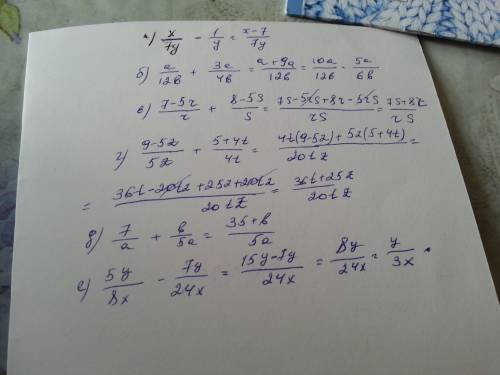 а) x/7y - 1/y = x-7/7y
б) a/12в + 3a/4в = a+9a/12в = 10a/12в = 5a/6в
в) 7-5r/r + 8-5S/S = 7S-5rS+8r-5rS/rS = 7S+8r/rS
г) 9-5z/5z + 5+4t/4t = 4t(9-5z)+5z(5+4t)/20tz =
= 36t-20tz+25z+20tz/20tz = 36t+25z/20tz
д) 7/a + в/5a = 35+в/5a
е) 5y/8x - 7y/24x = 15y-7y/24x = 8y/24x = y/3x.